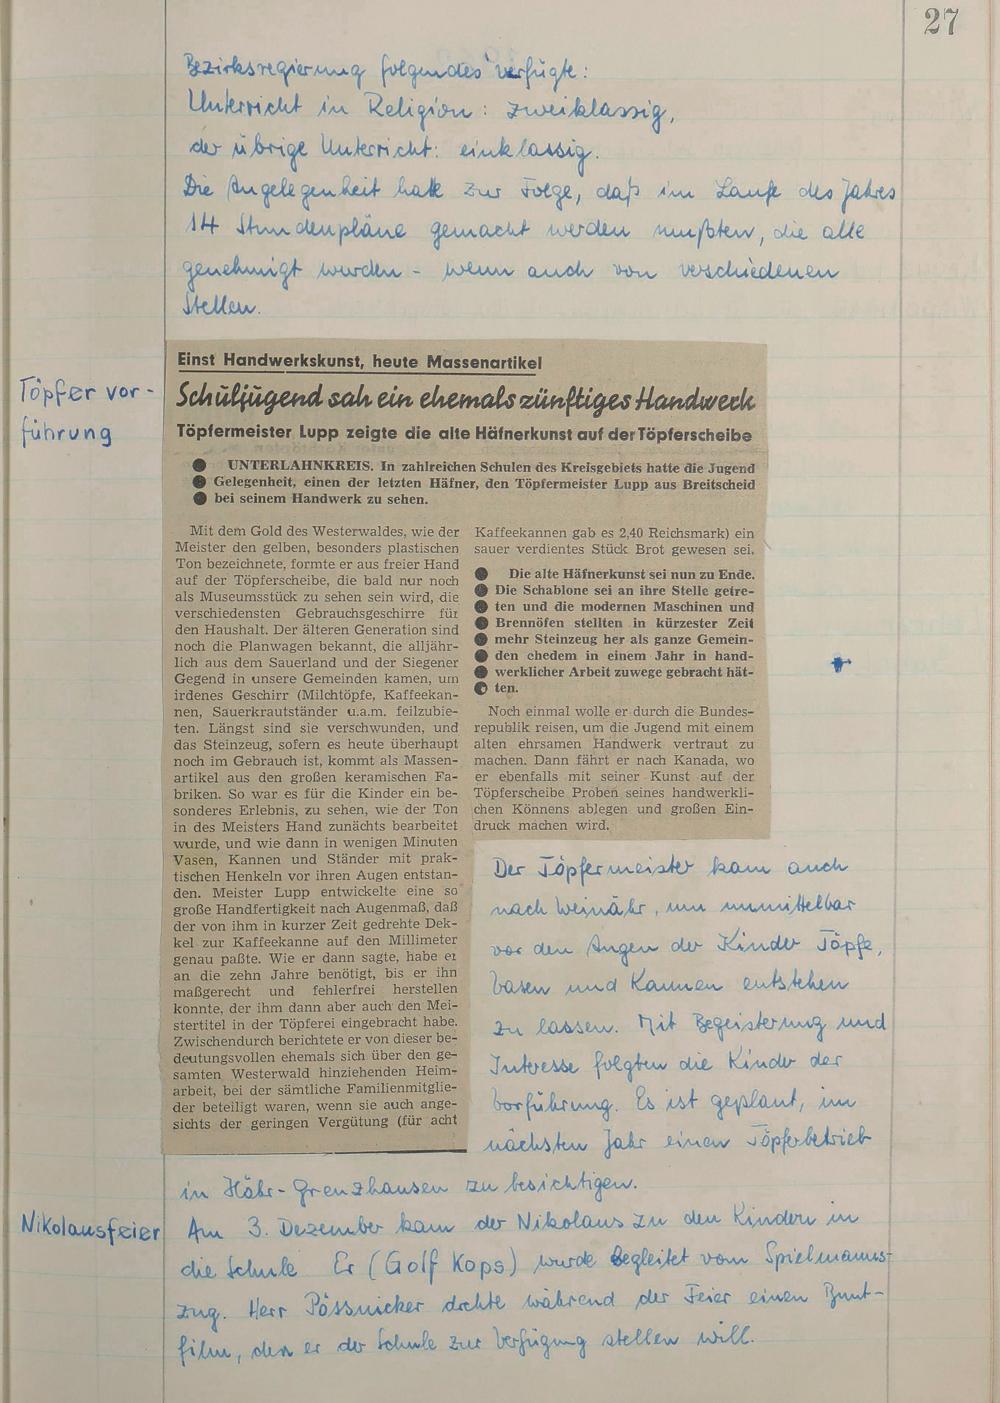 27
Bezirksregierung folgendes verfügte:
Unterricht in Religion: zweiklassig,
der übrige Unterricht: einklassig.
Die Angelegenheit hatte zur Folge, daß im Laufe des Jahres
14 Stundenpläne gemacht werden mußten, die alle
genehmigt wurden - wenn auch von verschiedenen
Stellen.
Töpfer vor-
führung
Einst Handwerkskunst, heute Massenartikel
Schuljugend sah ein ehemals zünftiges Handwerk
Töpfermeister Lupp zeigte die alte Häfnerkunst auf der Töpferscheibe
● UNTERLAHNKREIS. In zahlreichen Schulen des Kreisgebiets hatte die Jugend
● Gelegenheit, einen der letzten Häfner, den Töpfermeister Lupp aus Breitscheid
● bei seinem Handwerk zu sehen.
Mit dem Gold des Westerwaldes, wie der
Meister den gelben, besonders plastischen
Ton bezeichnete, formte er aus freier Hand
auf der Töpferscheibe, die bald nur noch
als Museumsstück zu sehen sein wird, die
verschiedensten Gebrauchsgeschirre für
den Haushalt. Der älteren Generation sind
noch die Planwagen bekannt, die alljähr-
lich aus dem Sauerland und der Siegener
Gegend in unsere Gemeinden kamen, um
irdenes Geschirr (Milchtöpfe, Kaffeekan-
nen, Sauerkrautständer u.a.m. feilzubie-
ten. Längst sind sie verschwunden, und
das Steinzeug, sofern es heute überhaupt
noch im Gebrauch ist, kommt als Massen-
artikel aus den großen keramischen Fa-
briken. So war es für die Kinder ein be-
sonderes Erlebnis, zu sehen, wie der Ton
in des Meisters Hand zunächts bearbeitet
wurde, und wie dann in wenigen Minuten
Vasen, Kannen und Ständer mit prak-
tischen Henkeln vor ihren Augen entstan-
den. Meister Lupp entwickelte eine so
große Handfertigkeit nach Augenmaß, daß
der von ihm in kurzer Zeit gedrehte Dek-
kel zur Kaffeekanne auf den Millimeter
genau paßte. Wie er dann sagte, habe er
an die zehn Jahre benötigt, bis er ihn
maßgerecht und fehlerfrei herstellen
konnte, der ihm dann aber auch den Mei-
stertitel in der Töpferei eingebracht habe.
Zwischendurch berichtete er von dieser be-
deutungsvollen ehemals sich über den ge-
samten Westerwald hinziehenden Heim-
arbeit, bei der sämtliche Familienmitglie-
der beteiligt waren, wenn sie auch ange-
sichts der geringen Vergütung (für acht
Kaffeekannen gab es 2,40 Reichsmark) ein
sauer verdientes Stück Brot gewesen sei.
● Die alte Häfnerkunst sei nun zu Ende.
● Die Schablone sei an ihre Stelle getre-
● ten und die modernen Maschinen und
● Brennöfen stellten in kürzester Zeit
● mehr Steinzeug her als ganze Gemein-
● den ehedem in einem Jahr in hand-
● werklicher Arbeit zuwege gebracht hät-
● ten.
Noch einmal wolle er durch die Bundes-
republik reisen, um die Jugend mit einem
alten ehrsamen Handwerk vertraut zu
machen. Dann fährt er nach Kanada, wo
er ebenfalls mit seiner Kunst auf der
Töpferscheibe Proben seines handwerkli-
chen Könnens ablegen und großen Ein-
druck machen wird.
Der Töpfermeister kam auch
nach Weinähr, um unmittelbar
vor den Augen der Kinder Töpfe,
Vasen und Kannen entstehen
zu lassen. Mit Begeisterung und
Interesse folgten die Kinder der
Vorführung. Es ist geplant, im
nächsten Jahr einen Töpferbetrieb
in Höhr-Grenzhausen zu besichtigen.
Nikolausfeier
Am 3. Dezember kam der Nikolaus zu den Kindern in
die Schule Er (Golf Kops) wurde begleitet vom Spielmanns-
zug. Herr Pössnicker drehte während der Feier einen Bunt-
film, den er der Schule zur Verfügung stellen will.